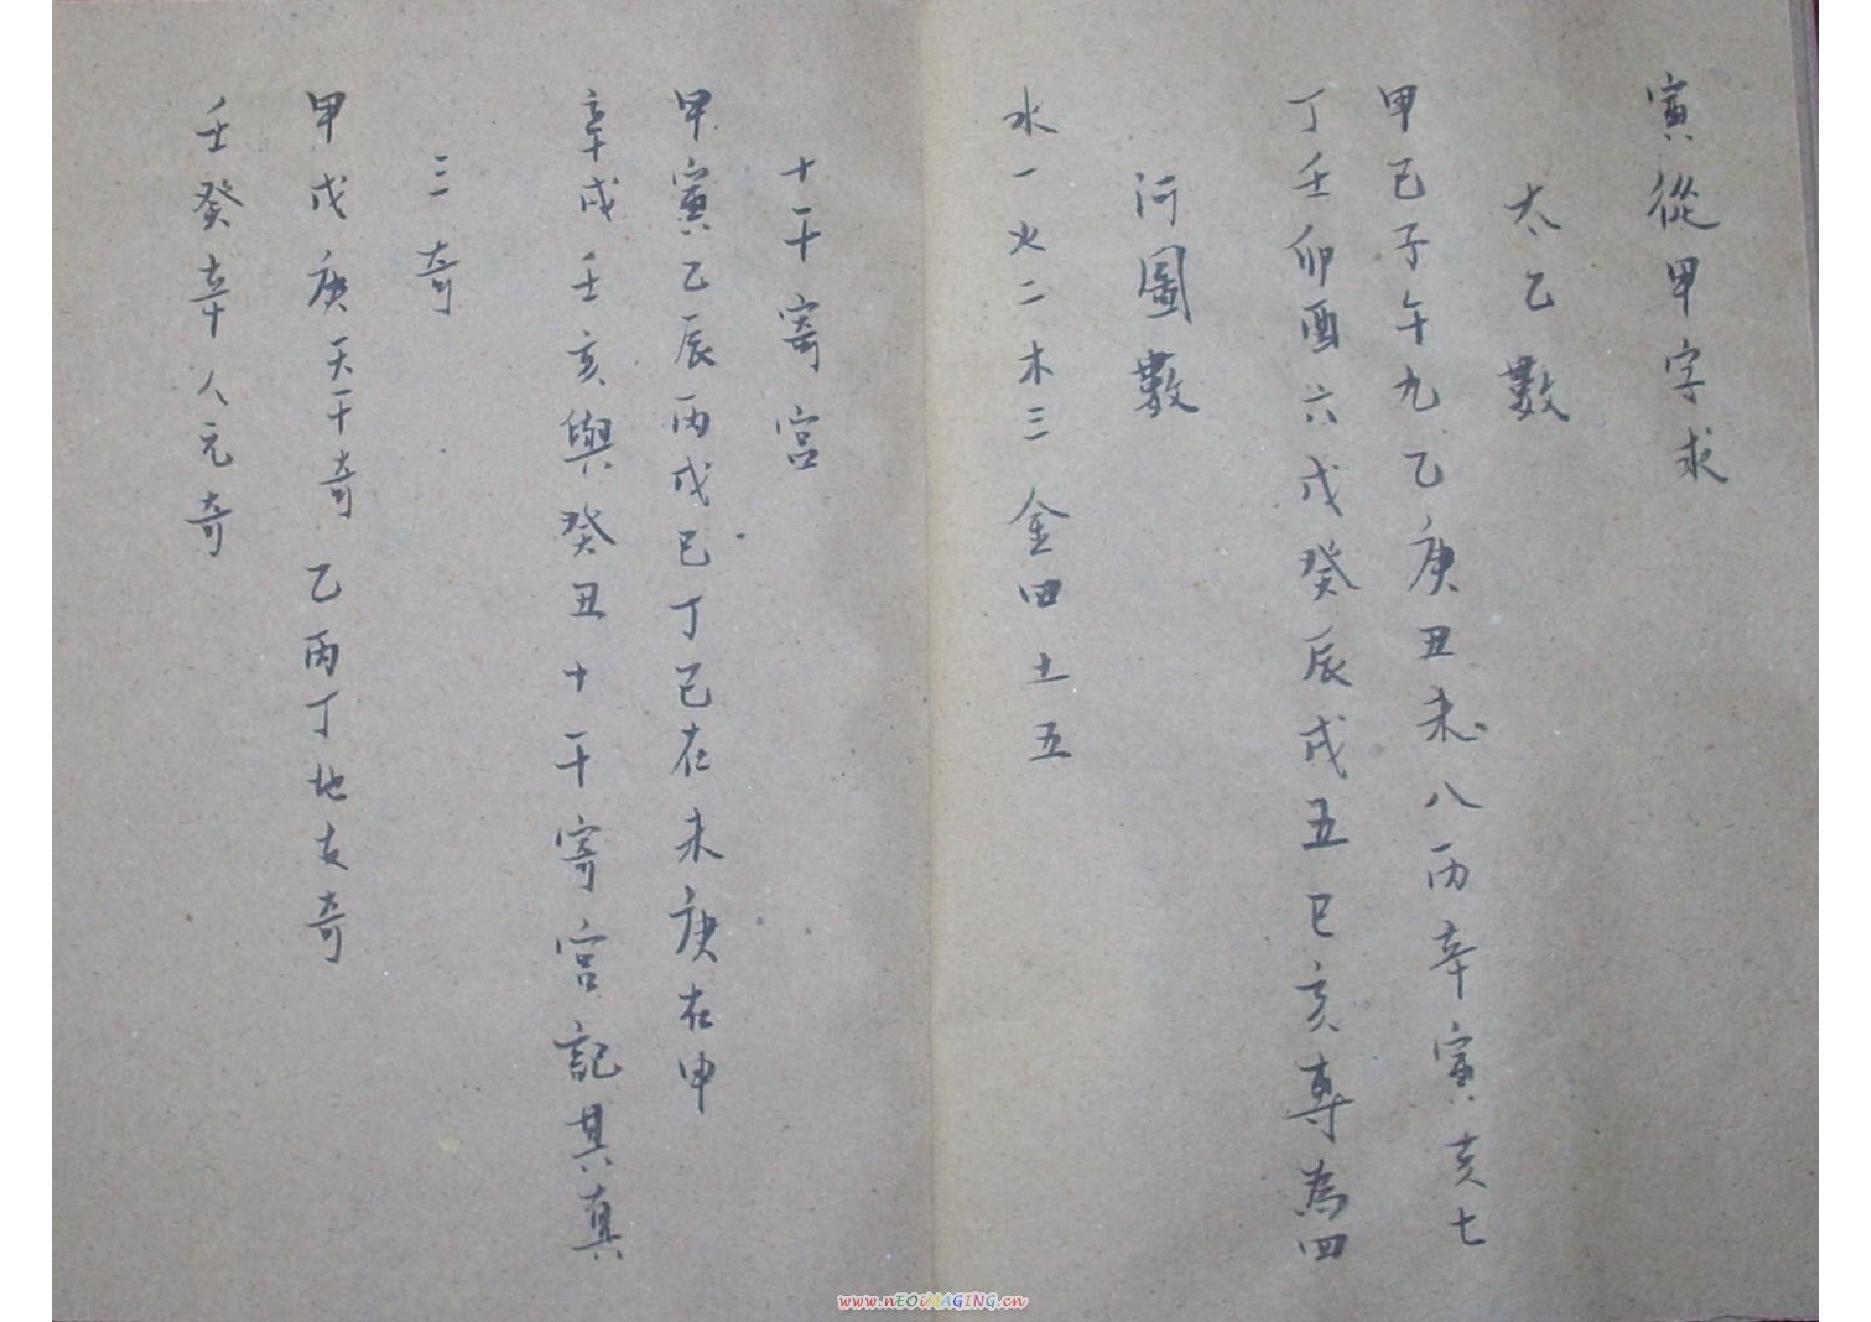 寅從甲字求
太乙數
甲己子午九乙庚丑未八丙辛寅亥七
丁壬卯酉六戊癸辰戌五巳亥專為四
河圖數
水一火二木三金四土五
十干寄宮
甲寅乙辰丙戊巳丁己在未庚在申
辛戌壬亥與癸丑十干寄宮記其真
三奇
甲戊庚天干奇乙丙丁地支奇
壬癸辛人元奇
www.nEOiMAGING.cn